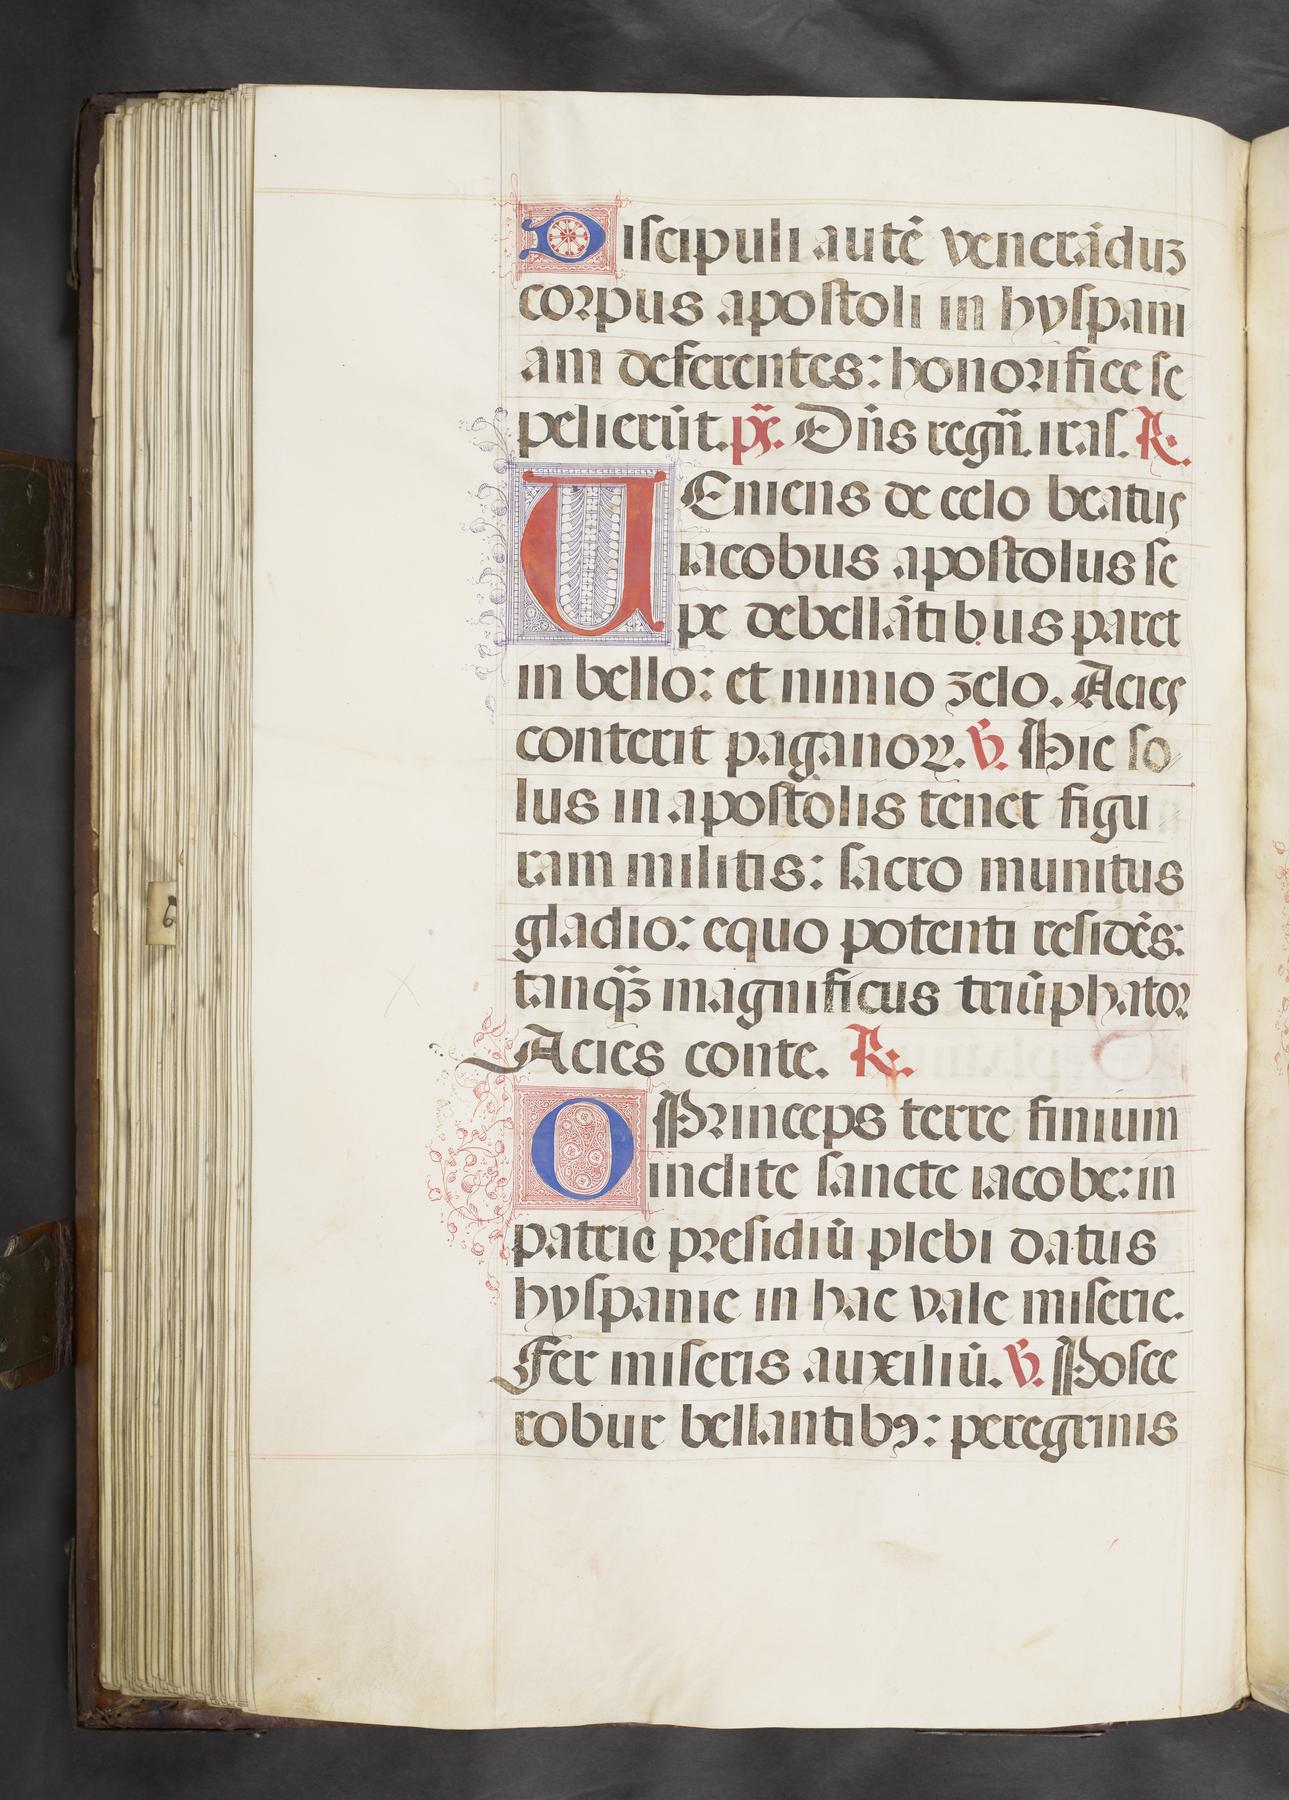 Discipuli autē venerāduꝫ
corpus apostoli in hyspani
am deferentes: honorifice se
pelierūt. ps̄. Dn̄s regn̄. iras. R.
UEniens de celo beatus
iacobus apostolus se
pe debellātibus paret
in bello: et nimio zelo. Acies
conterit paganoꝝ. V. Hic so
lus in apostolis tenet figu
ram militis: sacro munitus
gladio: equo potenti residēs:
tanqꝫ̄ magnificus triūphator
Acies conte. R.
O Princeps terre finium
inclite sancte iacobe: in
patrie presidiū plebi datus
hyspanie in hac vale miserie.
Fer miseris auxiliū. V. Posce
robur bellantibꝯ: peregrinis
6